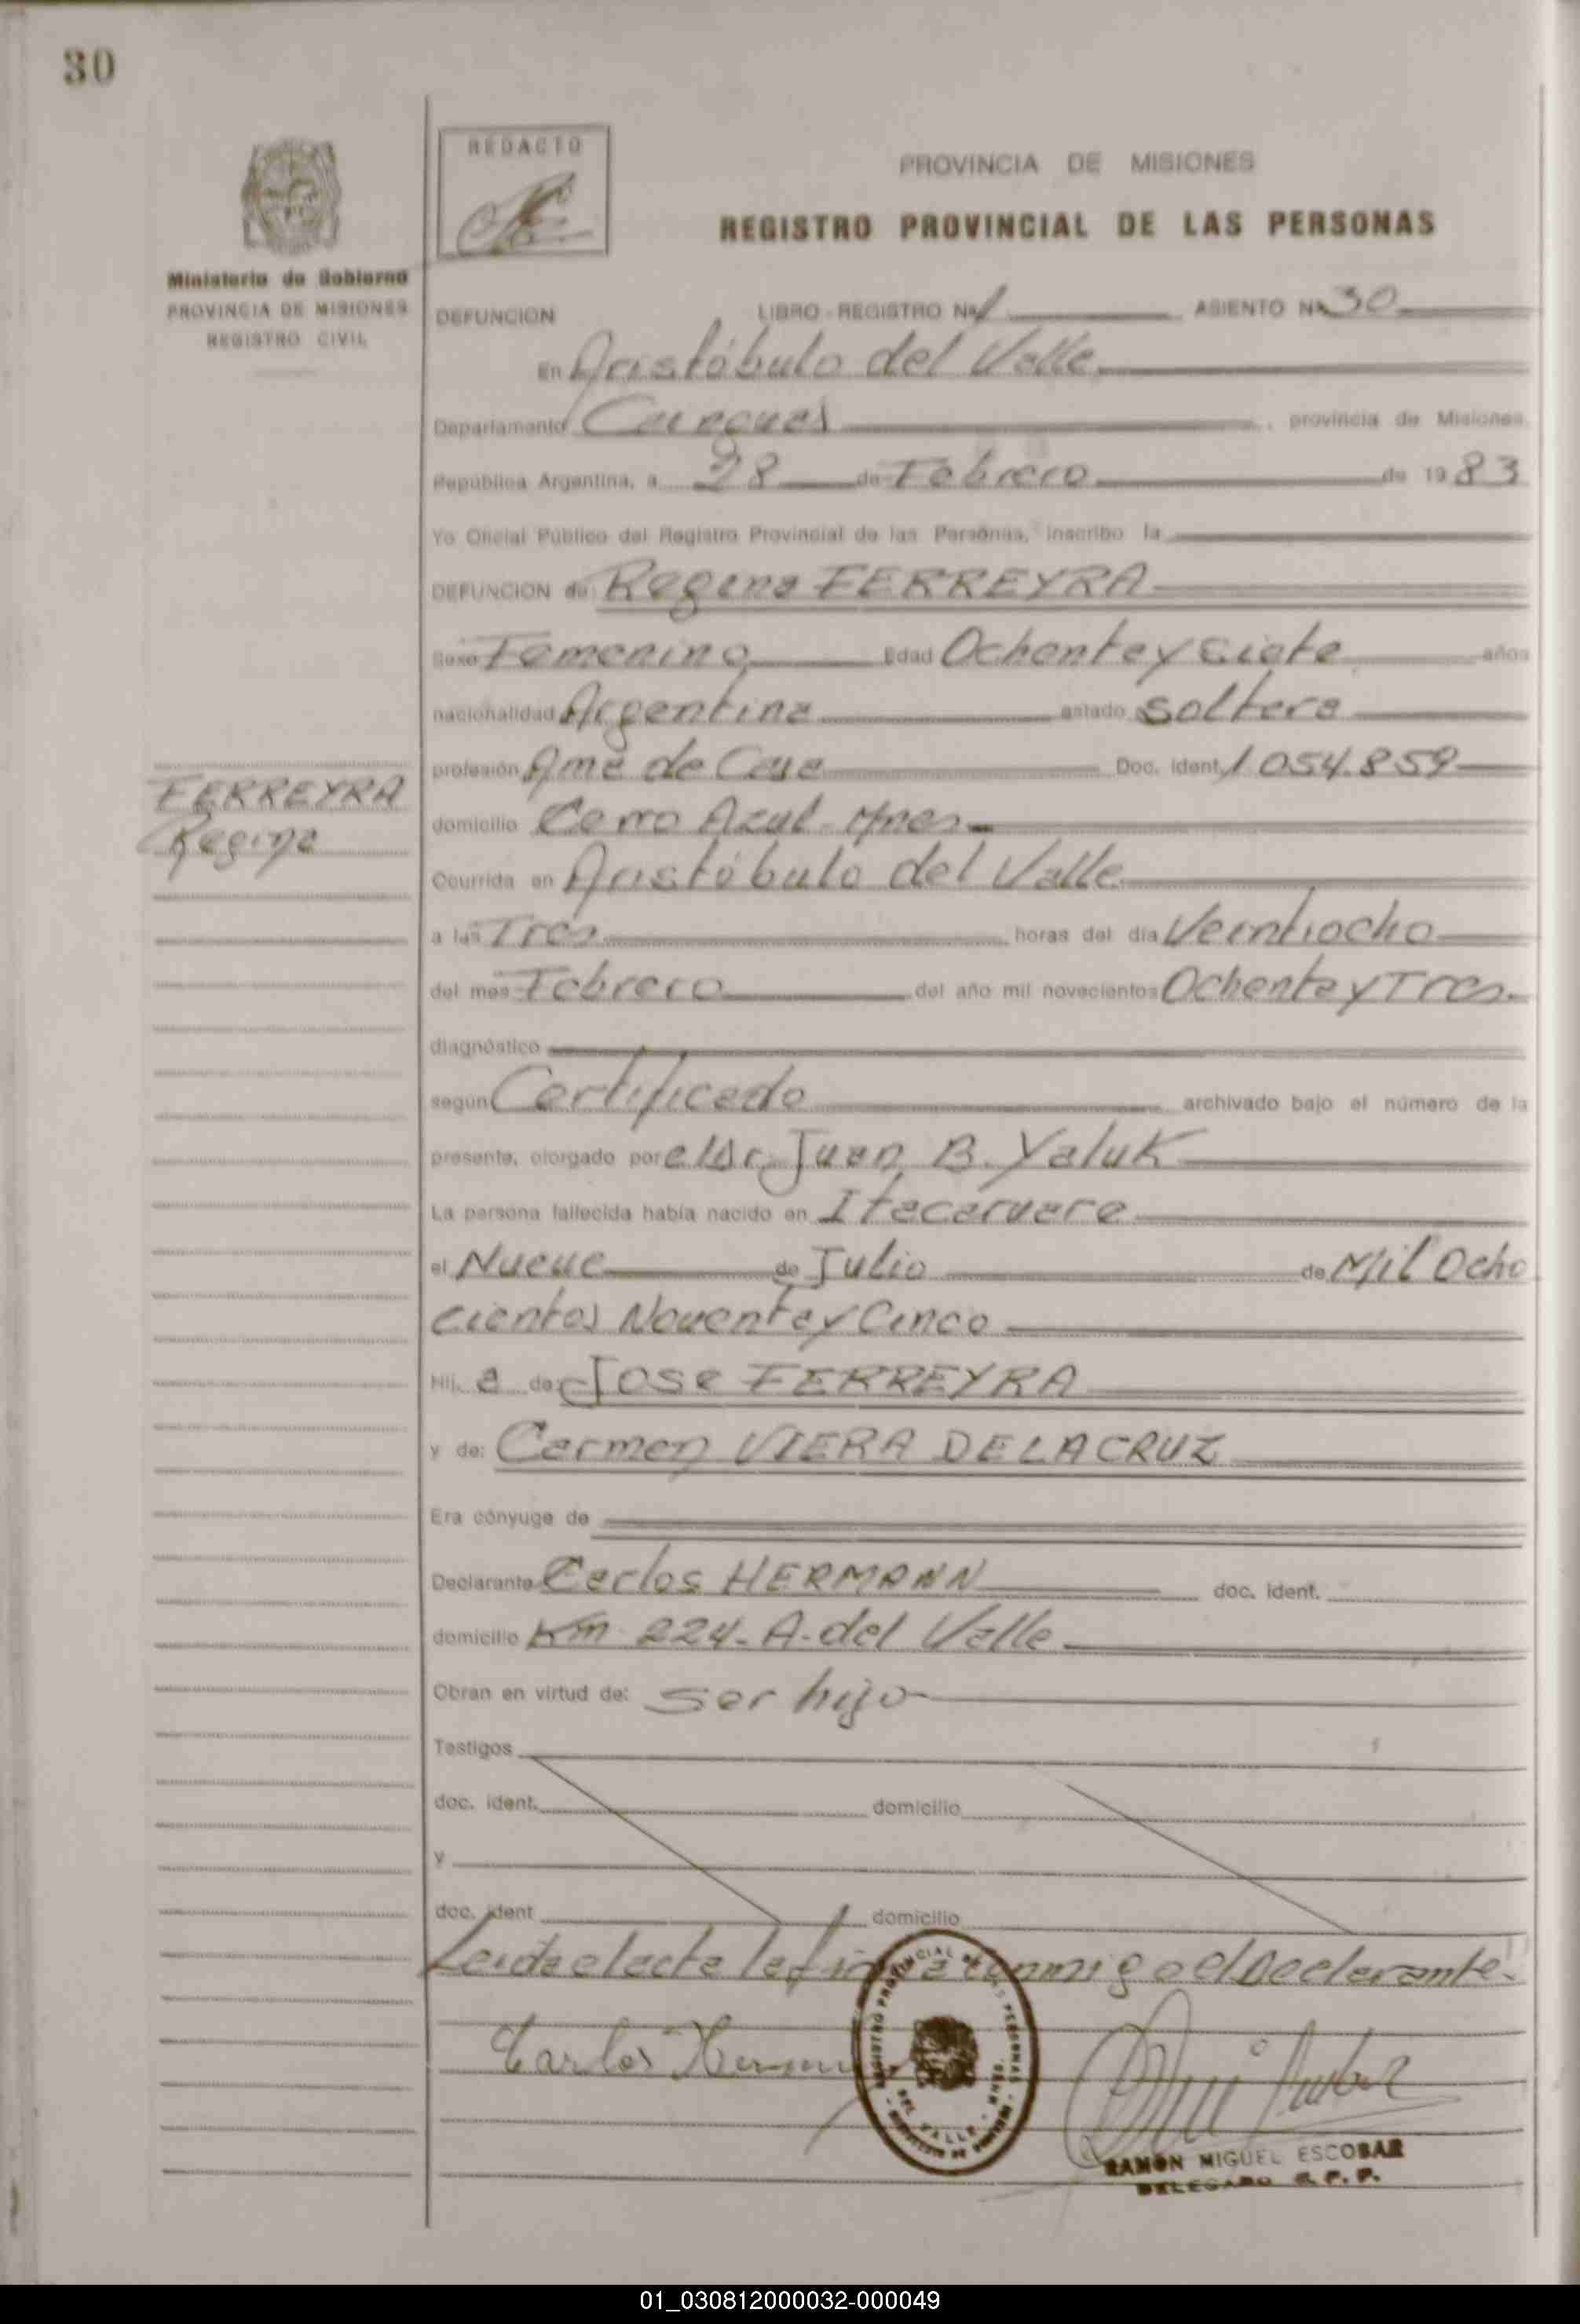 30
REDACTO
PROVINCIA DE MISIONES
REGISTRO PROVINCIAL DE LAS PERSONAS
Ministerio de Gobierno
PROVINCIA DE MISIONES
REGISTRO CIVIL
DEFUNCION LIBRO - REGISTRO Nº 1 ASIENTO Nº 30
En Aristóbulo del Valle
Departamento Cainguas, provincia de Misiones
República Argentina, a 28 de Febrero de 1983
Yo Oficial Público del Registro Provincial de las Personas, inscribo la
DEFUNCION de Regina FERREYRA
Sexo Femenino Edad Ochenta y Siete años
nacionalidad Argentina estado Soltera
profesión Ama de Casa Doc. Ident. 1.054.859
FERREYRA
Regina
domicilio Cerro Azul - Mnes.
Ocurrida en Aristóbulo del Valle
a las Tres horas del día Veintiocho
del mes Febrero del año mil novecientos Ochenta y Tres.
diagnóstico
según Certificado archivado bajo el número de la
presente, otorgado por el Dr. Juan B. Yaluk
La persona fallecida había nacido en Itacaruare
el Nueve de Julio de Mil Ocho
cientos Noventa y Cinco
Hij a de José FERREYRA
y de: Carmen VIERA DE LA CRUZ
Era cónyuge de
Declarante Carlos HERMANN doc. ident.
domicilio Km 224 - A. del Valle
Obran en virtud de: ser hijo
Testigos
doc. ident. domicilio
y
doc. ident domicilio
Leida el acta la firma conmigo el Declarante.
Carlos Hermann
REGISTRO PROVINCIAL DE LAS PERSONAS
DEL VALLE
RAMON MIGUEL ESCOBAR
DELEGADO R. P. P.
01_030812000032-000049